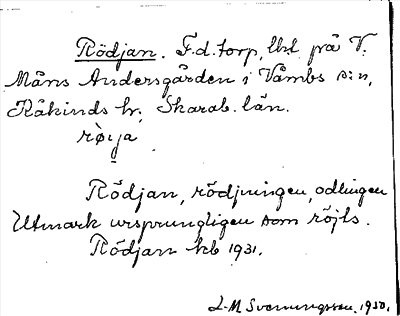 Rödjan. F.d. torp, lht på V.
Måns Andersgården i Våmbs s:n,
Kåkinds hr, Skarab. län.
røi̯a
Rödjan, rödjningen, odlingen
Utmark ursprungligen som röjts.
Rödjan kb 1931.
L-M Svenungsson. 1930.